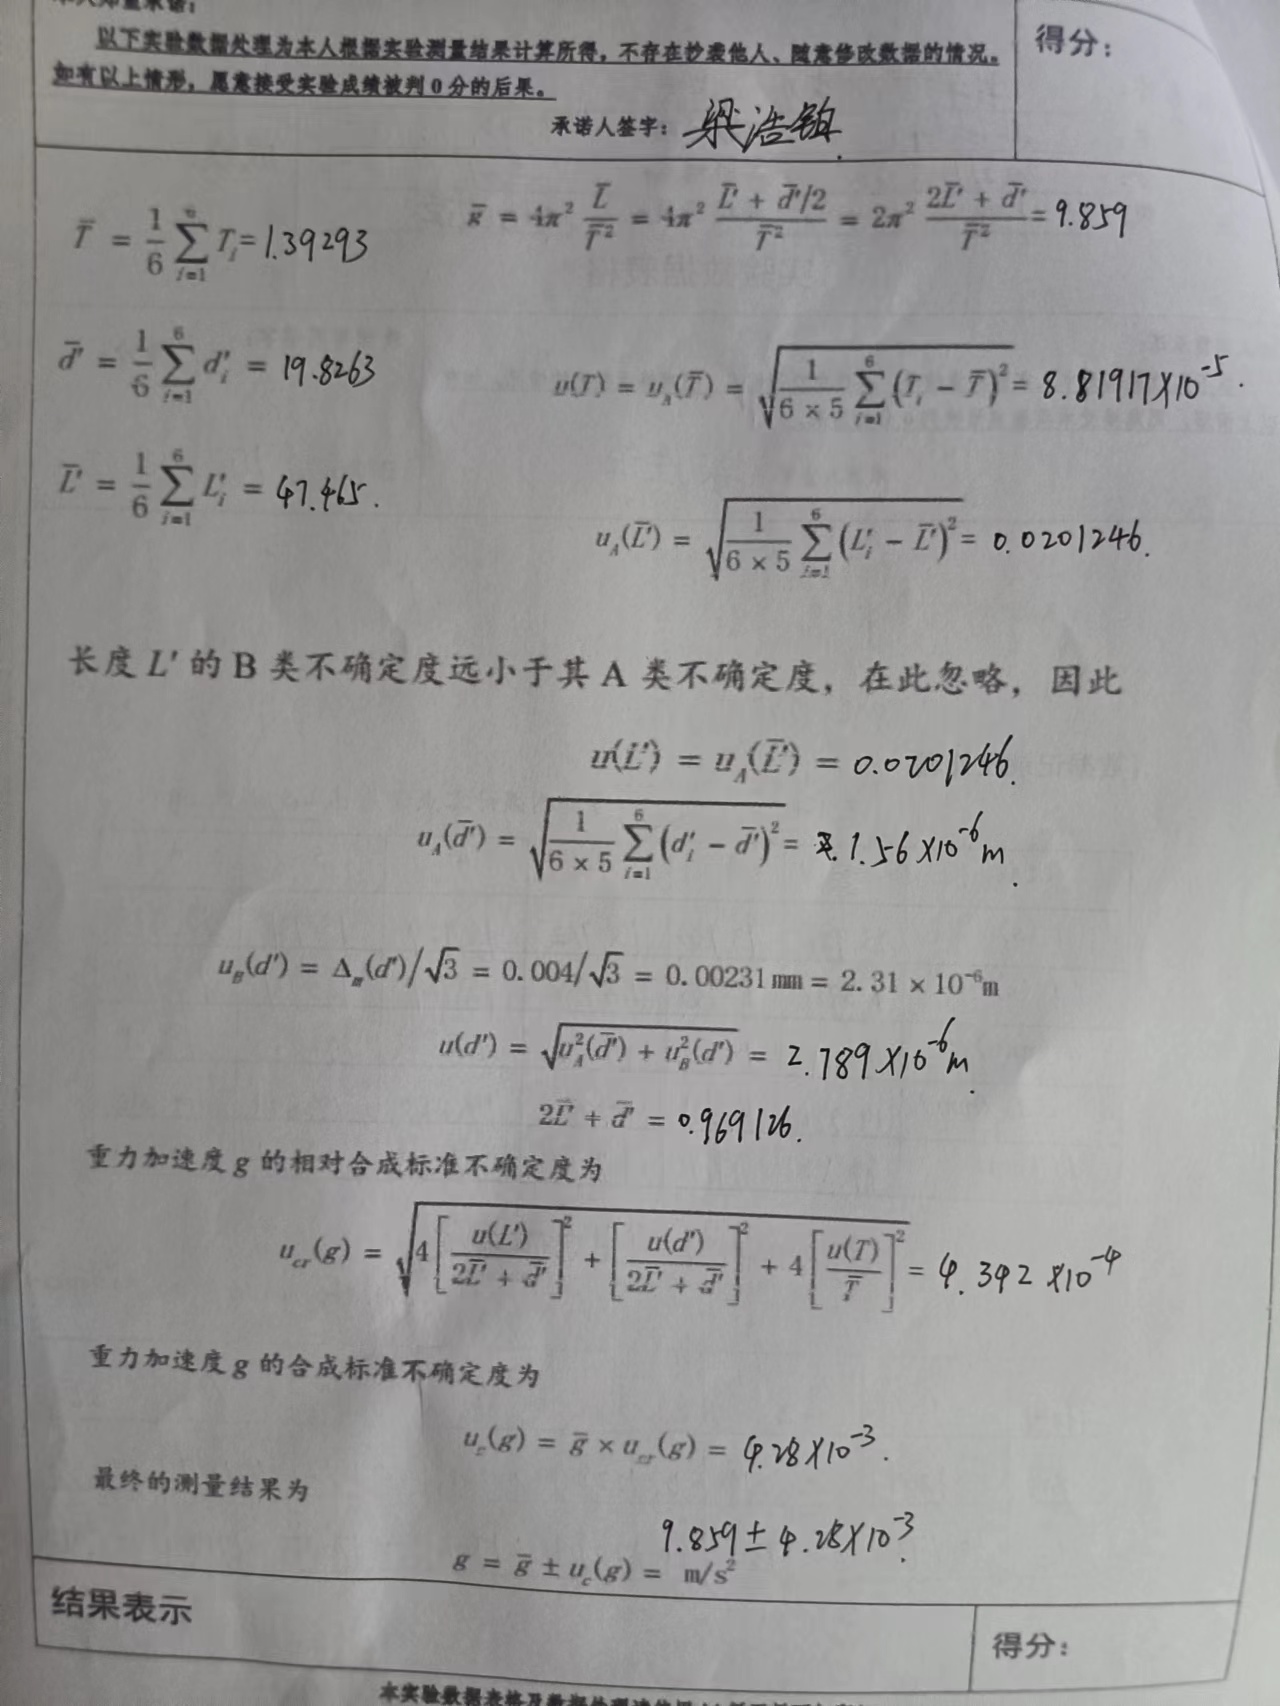 本人郑重承诺：
以下实验数据处理为本人根据实验测量结果计算所得，不存在抄袭他人、随意修改数据的情况。
如有以上情形，愿意接受实验成绩被判0分的后果。
得分：
承诺人签字：梁浩铂
T̄ = 1/6 ∑_{i=1}^{6} T_i = 1.39293
ḡ = 4π² L̄/T̄² = 4π² (L̄′ + d̄′/2)/T̄² = 2π² (2L̄′ + d̄′)/T̄² = 9.859
d̄′ = 1/6 ∑_{i=1}^{6} d′_i = 19.8263
u(T) = u_A(T̄) = √(1/(6×5) ∑_{i=1}^{6} (T_i − T̄)²) = 8.81917×10⁻⁵.
L̄′ = 1/6 ∑_{i=1}^{6} L′_i = 47.465.
u_A(L̄′) = √(1/(6×5) ∑_{i=1}^{6} (L′_i − L̄′)²) = 0.0201246.
长度 L′ 的 B 类不确定度远小于其 A 类不确定度，在此忽略，因此
u(L′) = u_A(L̄′) = 0.0201246.
u_A(d̄′) = √(1/(6×5) ∑_{i=1}^{6} (d′_i − d̄′)²) = 1.56×10⁻⁶m.
u_B(d′) = Δ_m(d′)/√3 = 0.004/√3 = 0.00231mm = 2.31×10⁻⁶m
u(d′) = √(u_A²(d̄′) + u_B²(d′)) = 2.789×10⁻⁶m.
2L̄′ + d̄′ = 0.969126.
重力加速度 g 的相对合成标准不确定度为
u_cr(g) = √(4[u(L′)/(2L̄′ + d̄′)]² + [u(d′)/(2L̄′ + d̄′)]² + 4[u(T)/T̄]²) = 4.342×10⁻⁴
重力加速度 g 的合成标准不确定度为
u_c(g) = ḡ × u_cr(g) = 4.28×10⁻³.
最终的测量结果为
9.859±4.28×10⁻³.
g = ḡ ± u_c(g) = m/s²
结果表示
得分：